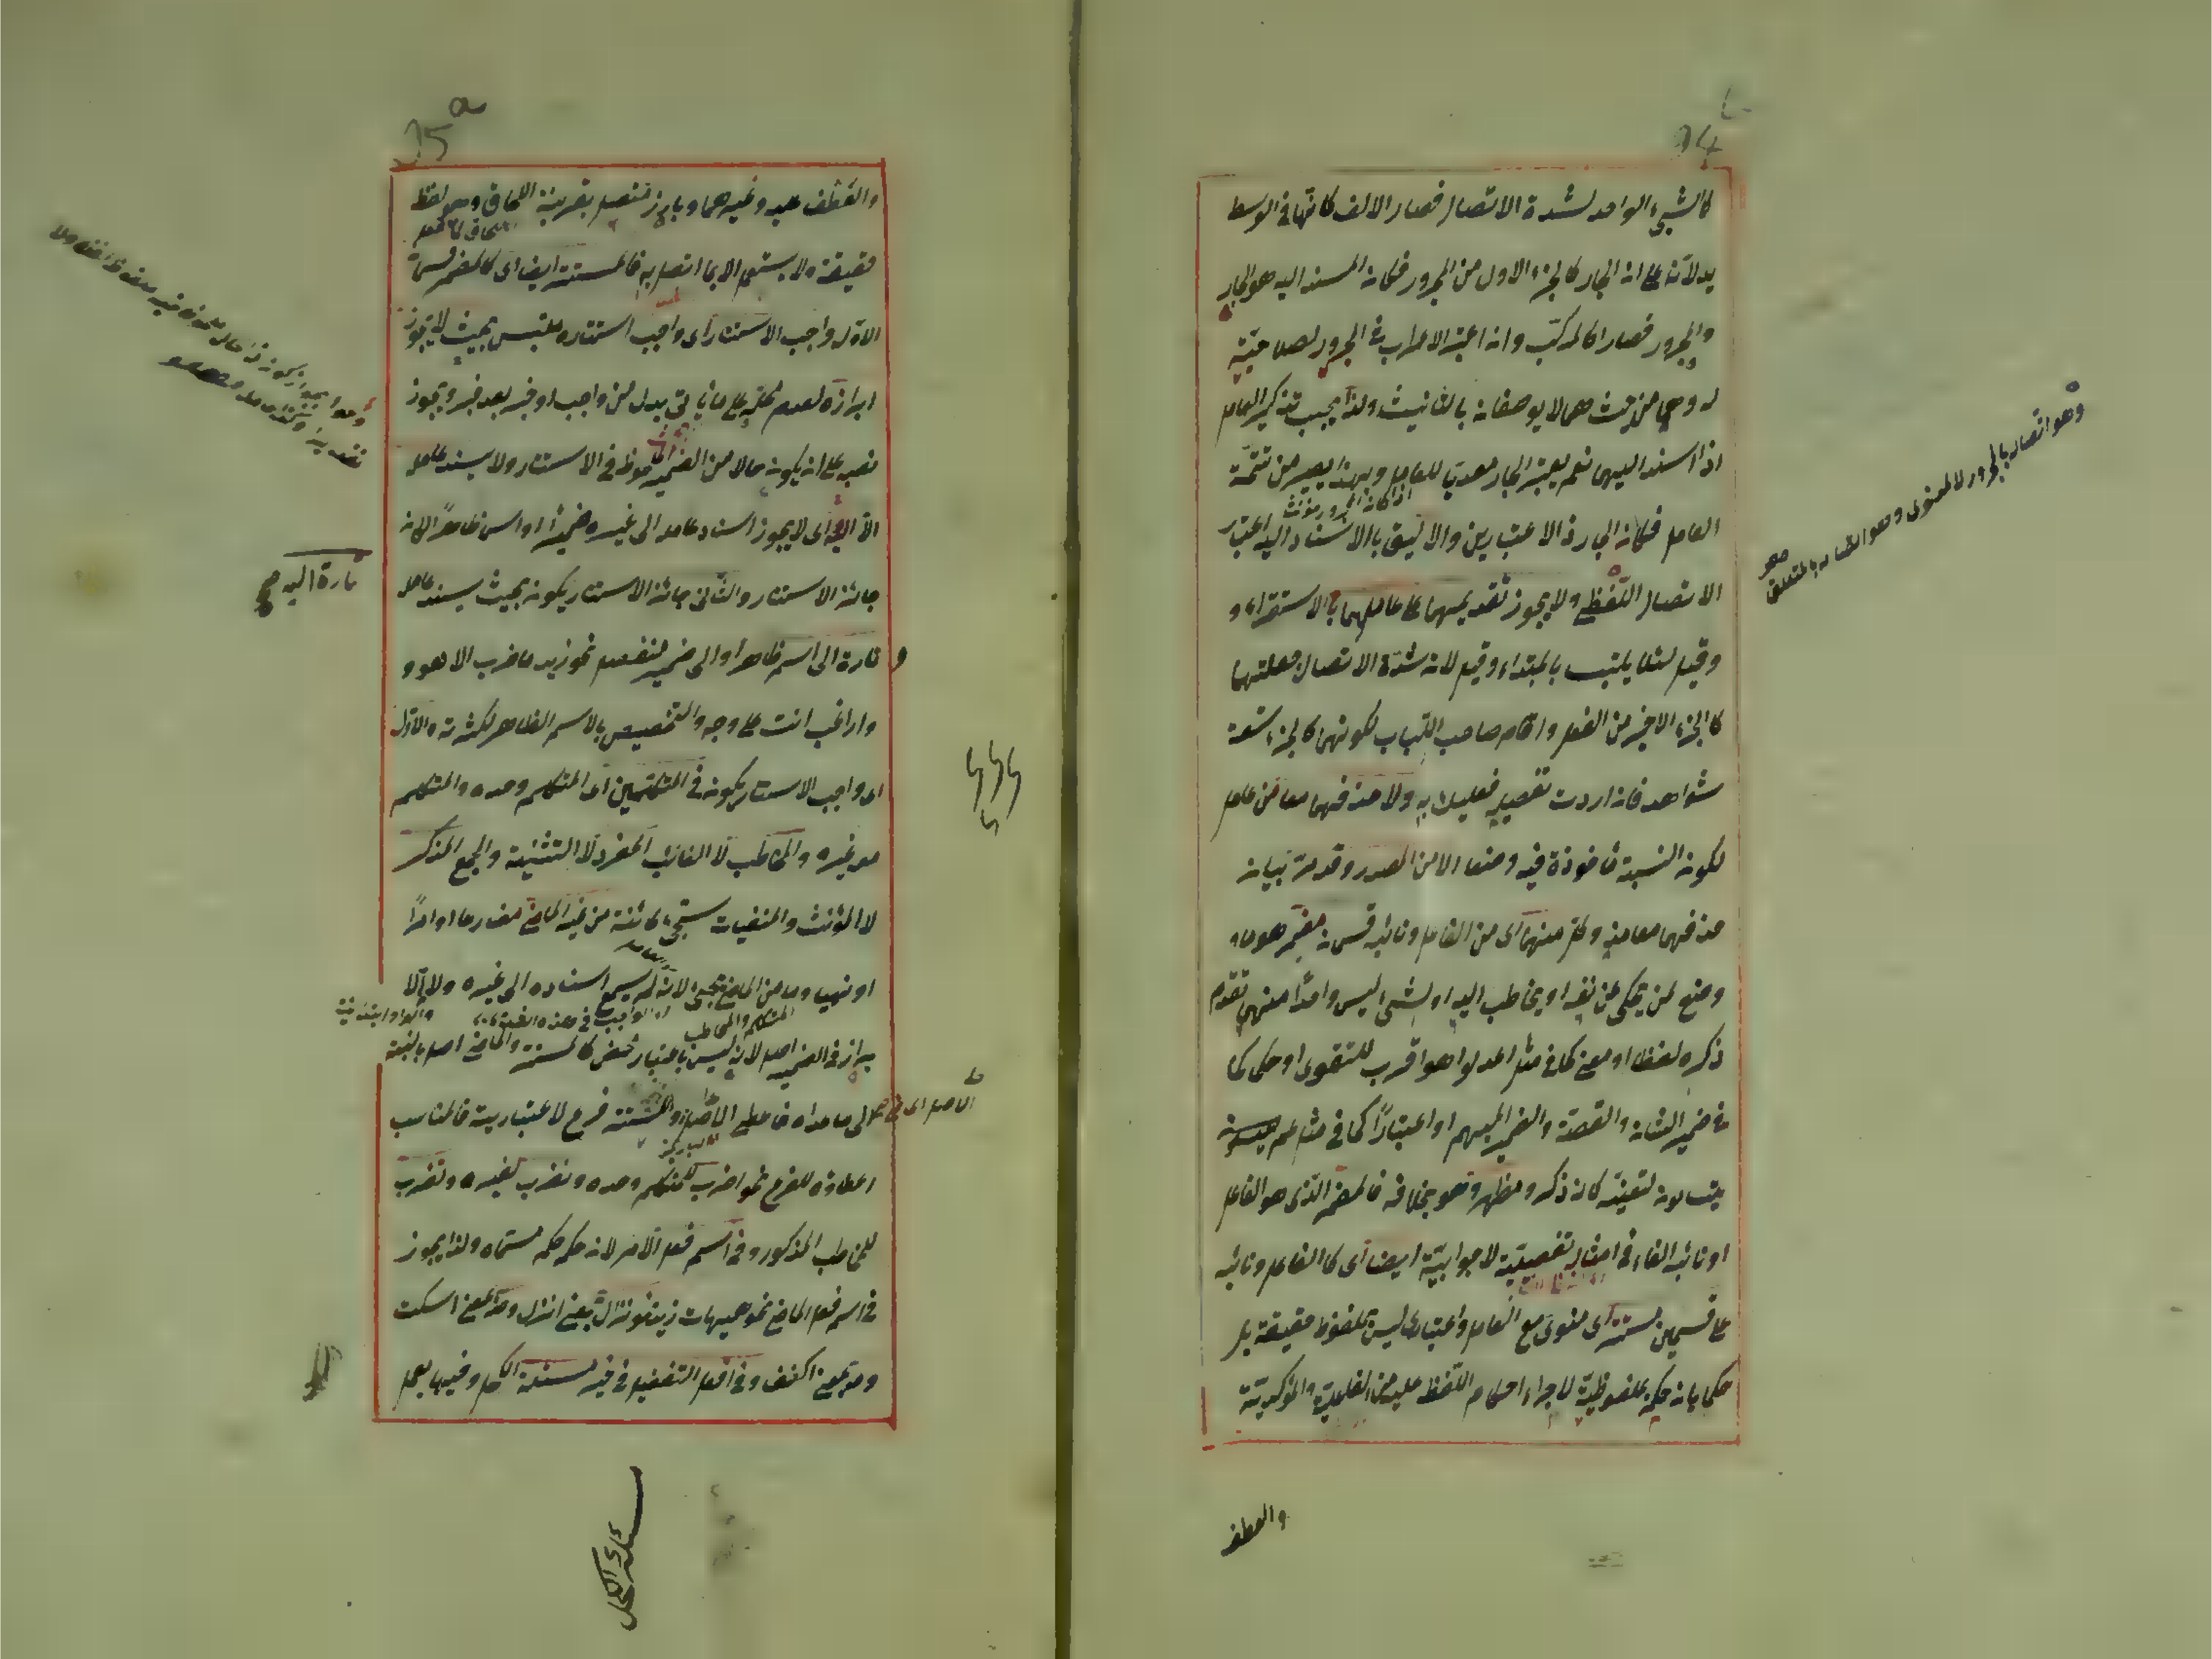 كالشيء الواحد لشدة الاتصال فصار الالف كانها في الوسط
يدلاننا على ان الجار كالجزء الاول من المجرور فكان المسند اليه هو الجار
والمجرور فصارا كالمركب وانما اعتبر الاعراب في المجرور لصلاحيته
له وهما من حيث هما لا يوصفان بالتانيث ولذا يجب تذكير العامل
اذا اسند اليهما نعم يعتبر الجار معديا للعامل وبهذا يصير من تتمة
اذا كان المجرور مؤنث
العامل فكان الجار ذا الاعتبارين والاليق بالاسناد اليه اعتبار
الاتصال اللفظي ولا يجوز تقديمهما على عاملهما بالاستقراء و
وقيل لئلا يلتبس بالمبتداء وقيل لان شدة الاتصال جعلتهما
كالجزء الاخير من الفعل واقام صاحب اللباب لكونهما كالجزء تسعة
شواهد فان اردت تفصيله فعليك به ولا حذفهما معا من عامل
لكون النسبة ماخوذة فيه وضعا الا من المصدر وقد مر بيانه
حذفهما معا منه وكل منهما اى من الفاعل ونائبه قسمان مضمر هو ما
وضع لمن يحكى عن نفسه او يخاطب اليه او لشيء ليس واحدا منهما تقدم
ذكره لفظا او معنى كما في مثل اعدلوا هو اقرب للتقوى او حكما كما
في ضمير الشان والقصة والضمير المبهم او اعتبارا كما في مثل عم
يتساءلون لتعينه كان ذكر ومظهر وهو بخلافه فالمضمر الذى هو الفاعل
او نائبه الفاء في امثاله تفصيلية لا جوابية ايضا اى كالفاعل ونائبه
على قسمين مستتر اى منوى مع العامل واعتبارى ليس بملفوظ حقيقة بل
حكما بان حكم بملفوظيته لاجراء احكام اللفظ عليه من الفاعلية والمؤكدية
والعطف
وهو اتصاله بالمجرور لا المعنوى وهو اتصاله بالمتعلق
والعطف عليه وغيرهما وبارز متصل بقرينة اللحاق وهو لفظ
حقيقة ولا يستعمل الا بما اتصل به فالمستتر ايضا اى كالمضمر قسمان
الاول واجب الاستتار اى واجب استتاره ملتبس بحيث لا يجوز
ابرازه لعدم على ما ياتى بدل من واجب او خبر بعد خبر ويجوز
نصبه على ان يكون حالا من الضمير في الاستتار ولا يسند عامله
الا اليه اى لا يجوز اسناد عامله الى غيره ضميرا او اسما ظاهرا لا
جائز الاستتار والثانى جائز الاستتار يكون بحيث يسند عامله
تارة اليه صح
وتارة الى اسم ظاهر او الى ضمير منفصل نحو زيد ما ضرب الا هو و
واراغب انت على وجه والتخصيص بالاسم الظاهر لكثرته والاول
اى واجب الاستتار يكون في المتكلمين اى المتكلم وحده والمتكلم
مع غيره والمخاطب لا الغائب المفرد لا التثنية والجمع المذكر
لا المؤنث والمنفيات ستجيء كائنة من غير الماضى مضارعا او امرا
او نهيا وما من الماضى يجيء لانه لم يسمع اسناده الى غيره ولا
المتكلم والمخاطب
براز في الضمير اصل لانه ليس باعتبار محض كالمستتر والماضى اصل بالنسبة
الى ما عداه فاعطى الاصل والمستتر فرع لاعتباريته فالمناسب
اعطاؤه للفرع نحو اضرب للمتكلم وحده ونضرب لغيره وتضرب
للمخاطب المذكور وفى اسم فعل الامر لان حكمه حكم مسماه ولذا يجوز
في اسم فعل الماضى نحو هيهات زيد نحو نزال بمعنى انزل وصه بمعنى اسكت
ومه بمعنى اكفف وفى افعل التفضيل في غير مسئلة الكحل وفيها يعمل
مسئلة الكحل